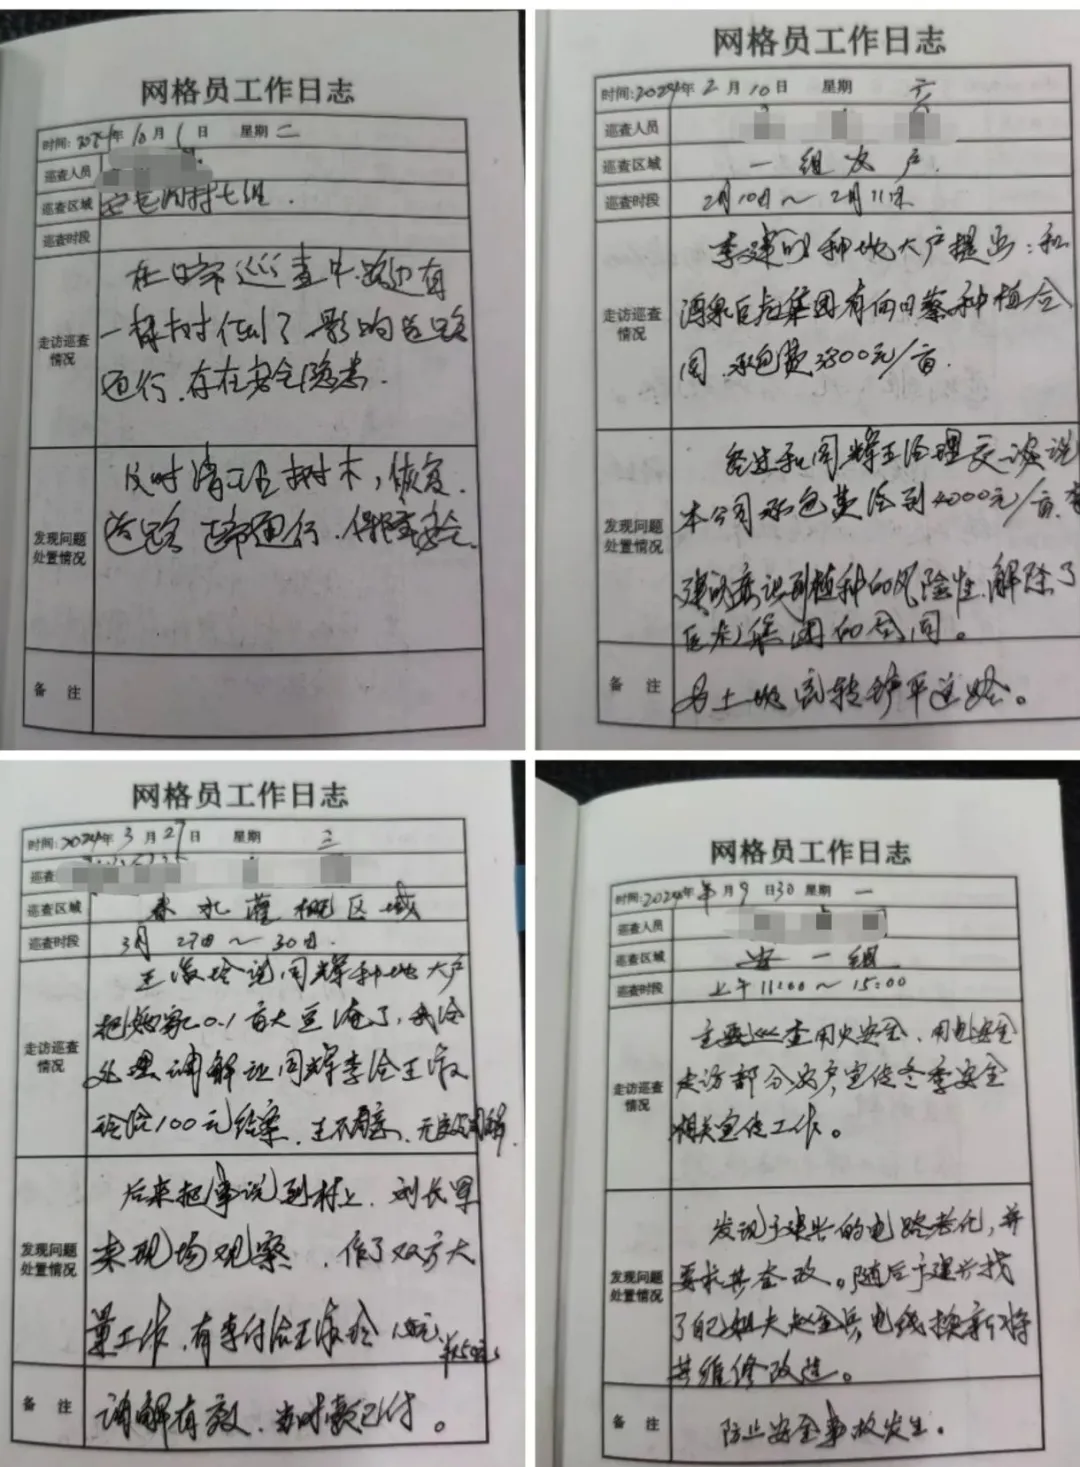 网格员工作日志
时间:2024年10月1日 星期二
巡查人员
巡查区域 村七组.
巡查时段
走访巡查情况
在日常巡查中,路边有
一棵树倒了影响道路
通行.存在安全隐患.
发现问题处置情况
及时清理树木,恢复.
道路正常通行.保障安全.
备注
网格员工作日志
时间:2024年2月10日 星期六
巡查人员
巡查区域 一组农户.
巡查时段 2月10日~2月11日
走访巡查情况
李建的种地大户提出:和
酒泉巨龙集团有向日葵种植合
同.承包费3800元/亩.
发现问题处置情况
经过和同辉王经理交谈说
本公司承包费给到4000元/亩.李
建的意识到植种的风险性.解除了
巨龙集团的合同。
备注 为土地流转铲平道路。
网格员工作日志
时间:2024年3月27日 星期三
巡查
巡查区域 春水灌溉区域
巡查时段 3月27日~30日.
走访巡查情况
王淑玲说同辉种地大户
把她家0.1亩大豆淹了,我给
处理调解让同辉李给王淑
玲给100元结案.王不同意.无效调解.
发现问题处置情况
后来把事说到村上.刘长军
来现场观察.作了双方大
量工作.有李付给王淑玲
备注 调解有效.当时款已付。
网格员工作日志
时间:2024年 月9日30星期一
巡查人员
巡查区域 安一组
巡查时段 上午11:00~15:00
走访巡查情况
主要巡查用火安全、用电安全
走访部分农户,宣传冬季安全
相关宣传工作。
发现问题处置情况
发现于建兴的电路老化,并
要求其查改。随后于建兴找
了自己姐夫赵金兵,电线换新将
其维修改造。
备注 防止安全事故发生。